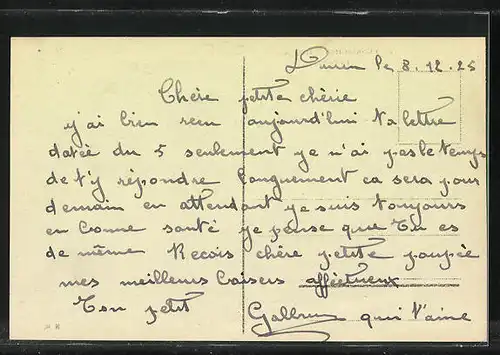 le 8.12.25
Chère petite chérie
y'ai bien recu aujourd'hui ta lettre
datée du 5 seulement ye n'ai pas le temps
de t'y répondre longuement ca sera pour
demain en attendant ye suis toujours
en bonne santé ye pense que tu es
de même Recois chère petite poupée
mes meilleurs baisers affectueux
Ton petit qui t'aime